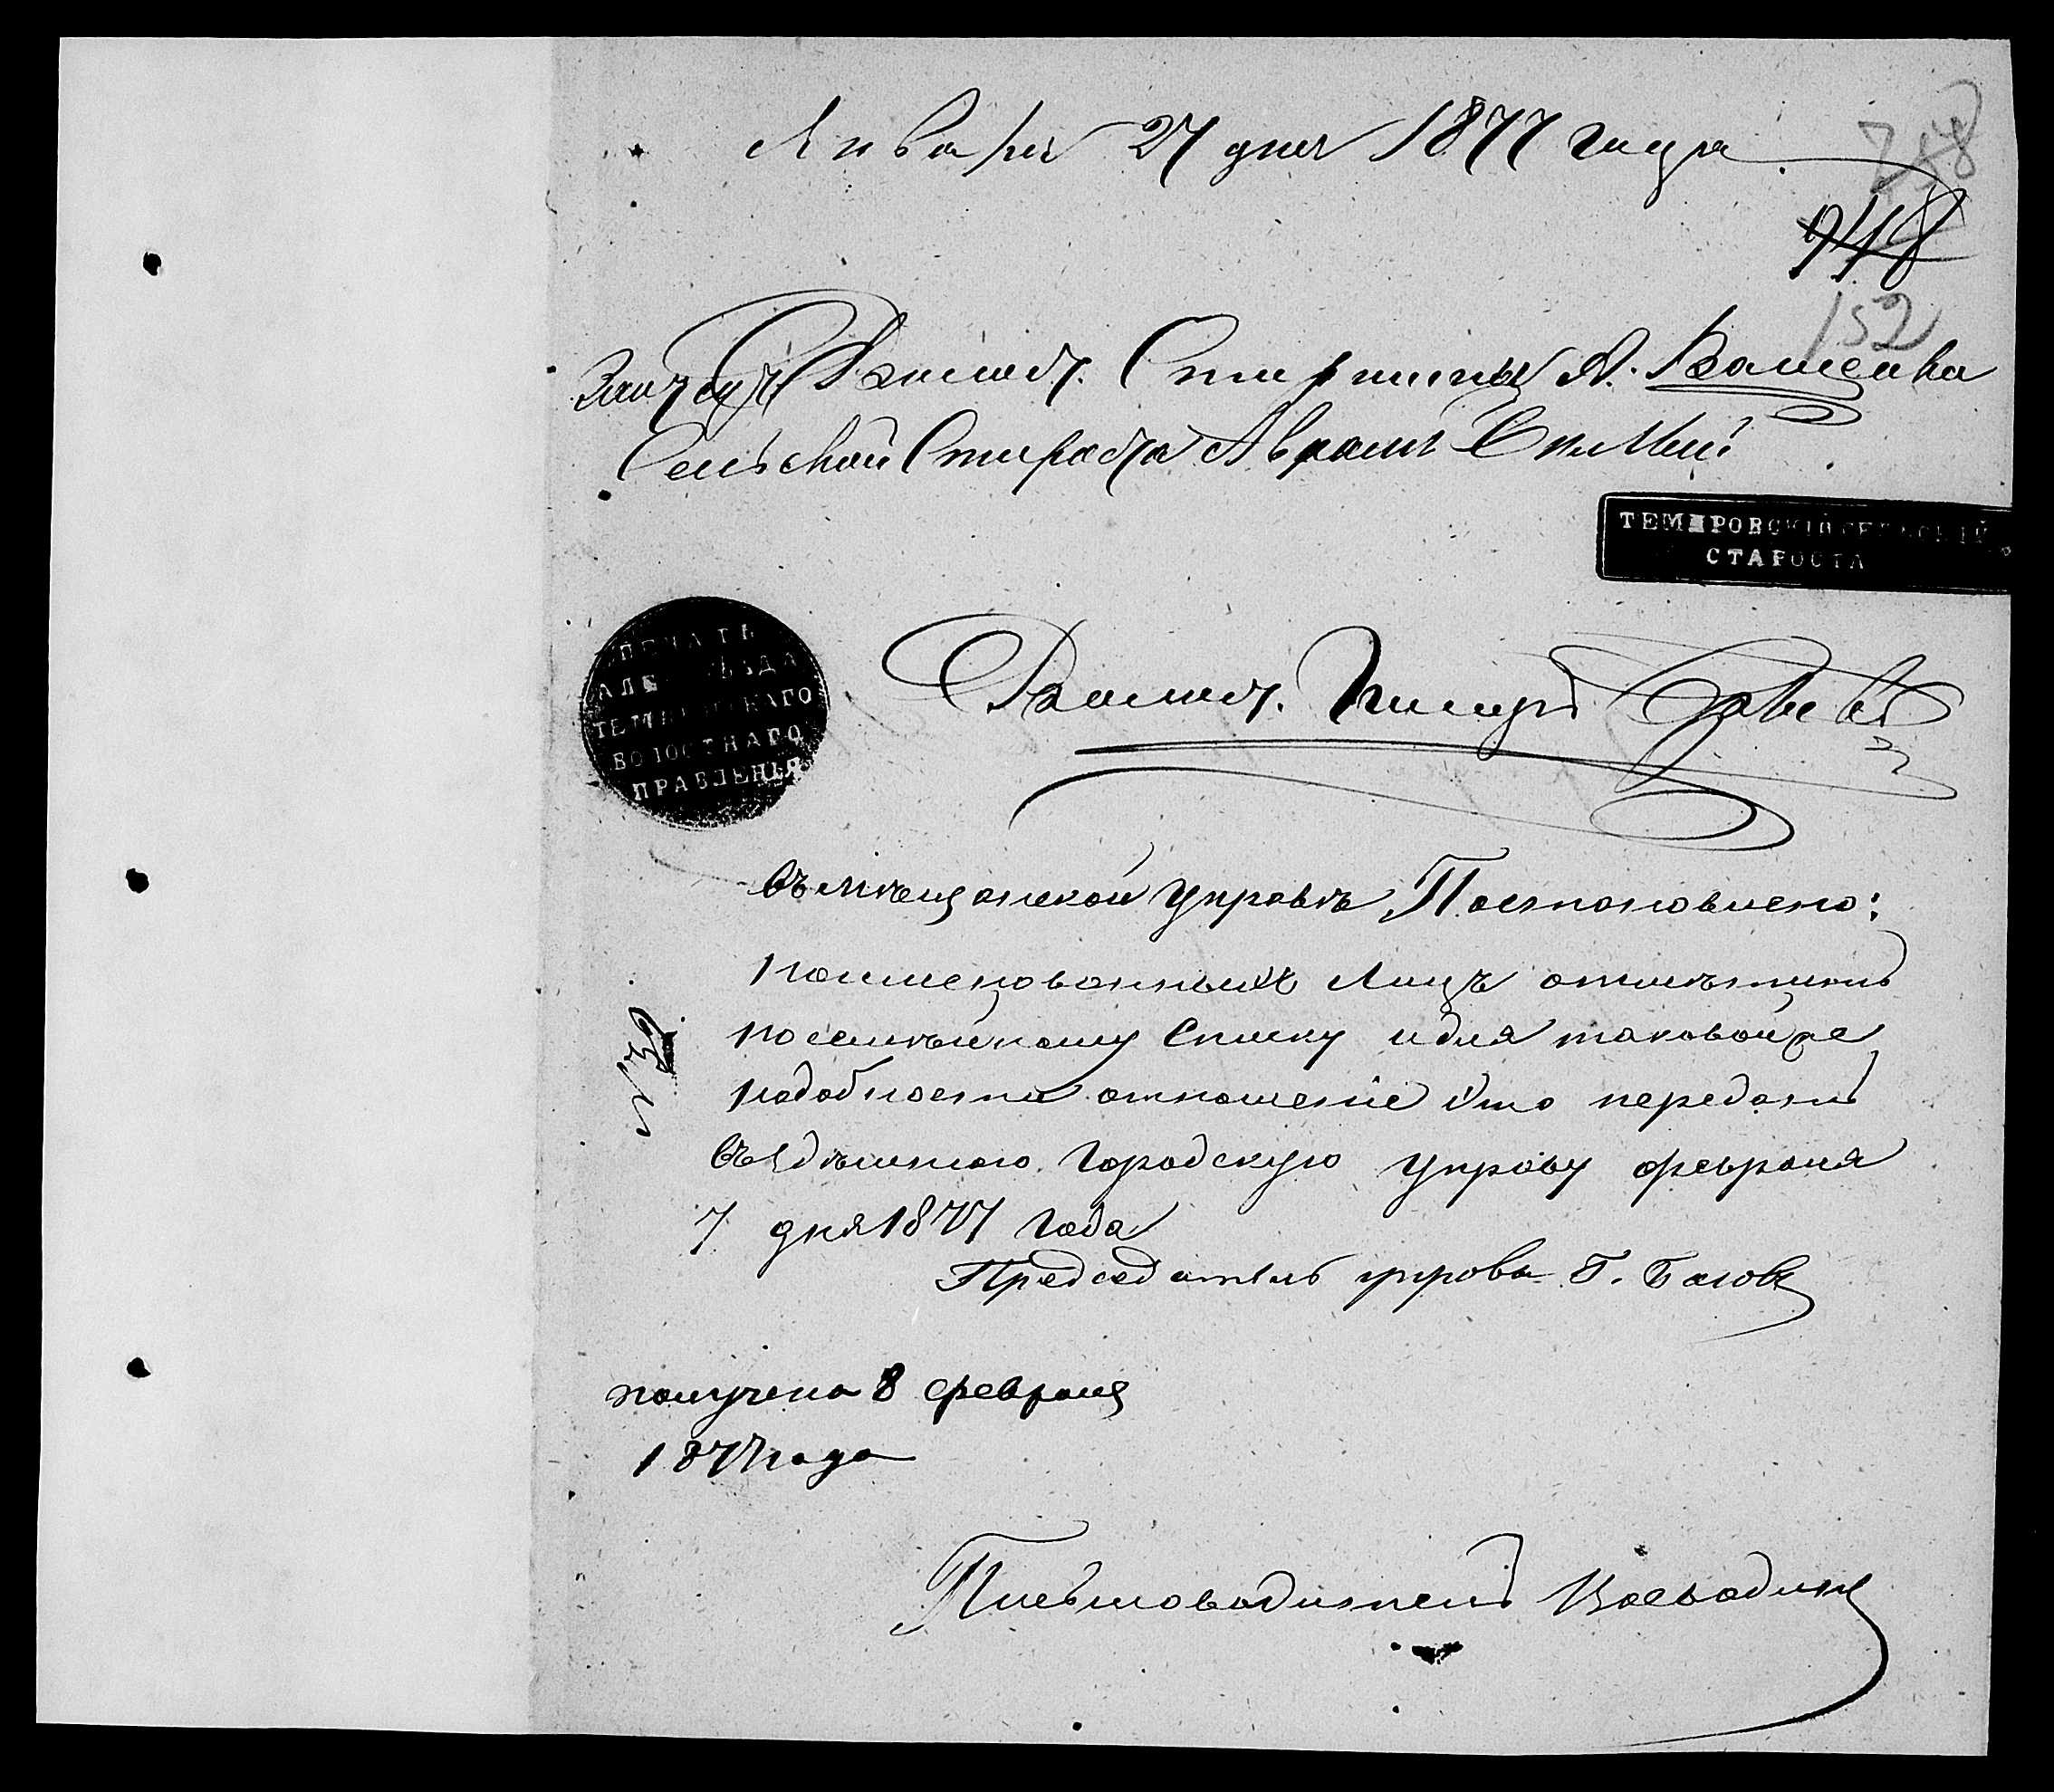 Января 27 дня 1877 года
258
948
152
Волост. Старшины А.
Сельской Староста Аврам
ТЕМЕРОВСКІЙ СЕЛЬСКІЙ
СТАРОСТА
ПЕЧАТЬ
АЛЕ УѢЗДА
ТЕМЕРОВСКАГО
ВОЛОСТНАГО
ПРАВЛЕНЬЯ
Волост. Писарь
Въ мѣщанской управѣ Постановлено:
поименованныхъ лицъ отмѣтить
по семѣйному списку и для таковой же
надобности отношеніе это передать
въ здѣшнюю городскую управу февраля
7 дня 1877 года
Председатель управы Г.
получено 8 февраля
1877 года
Письмоводитель